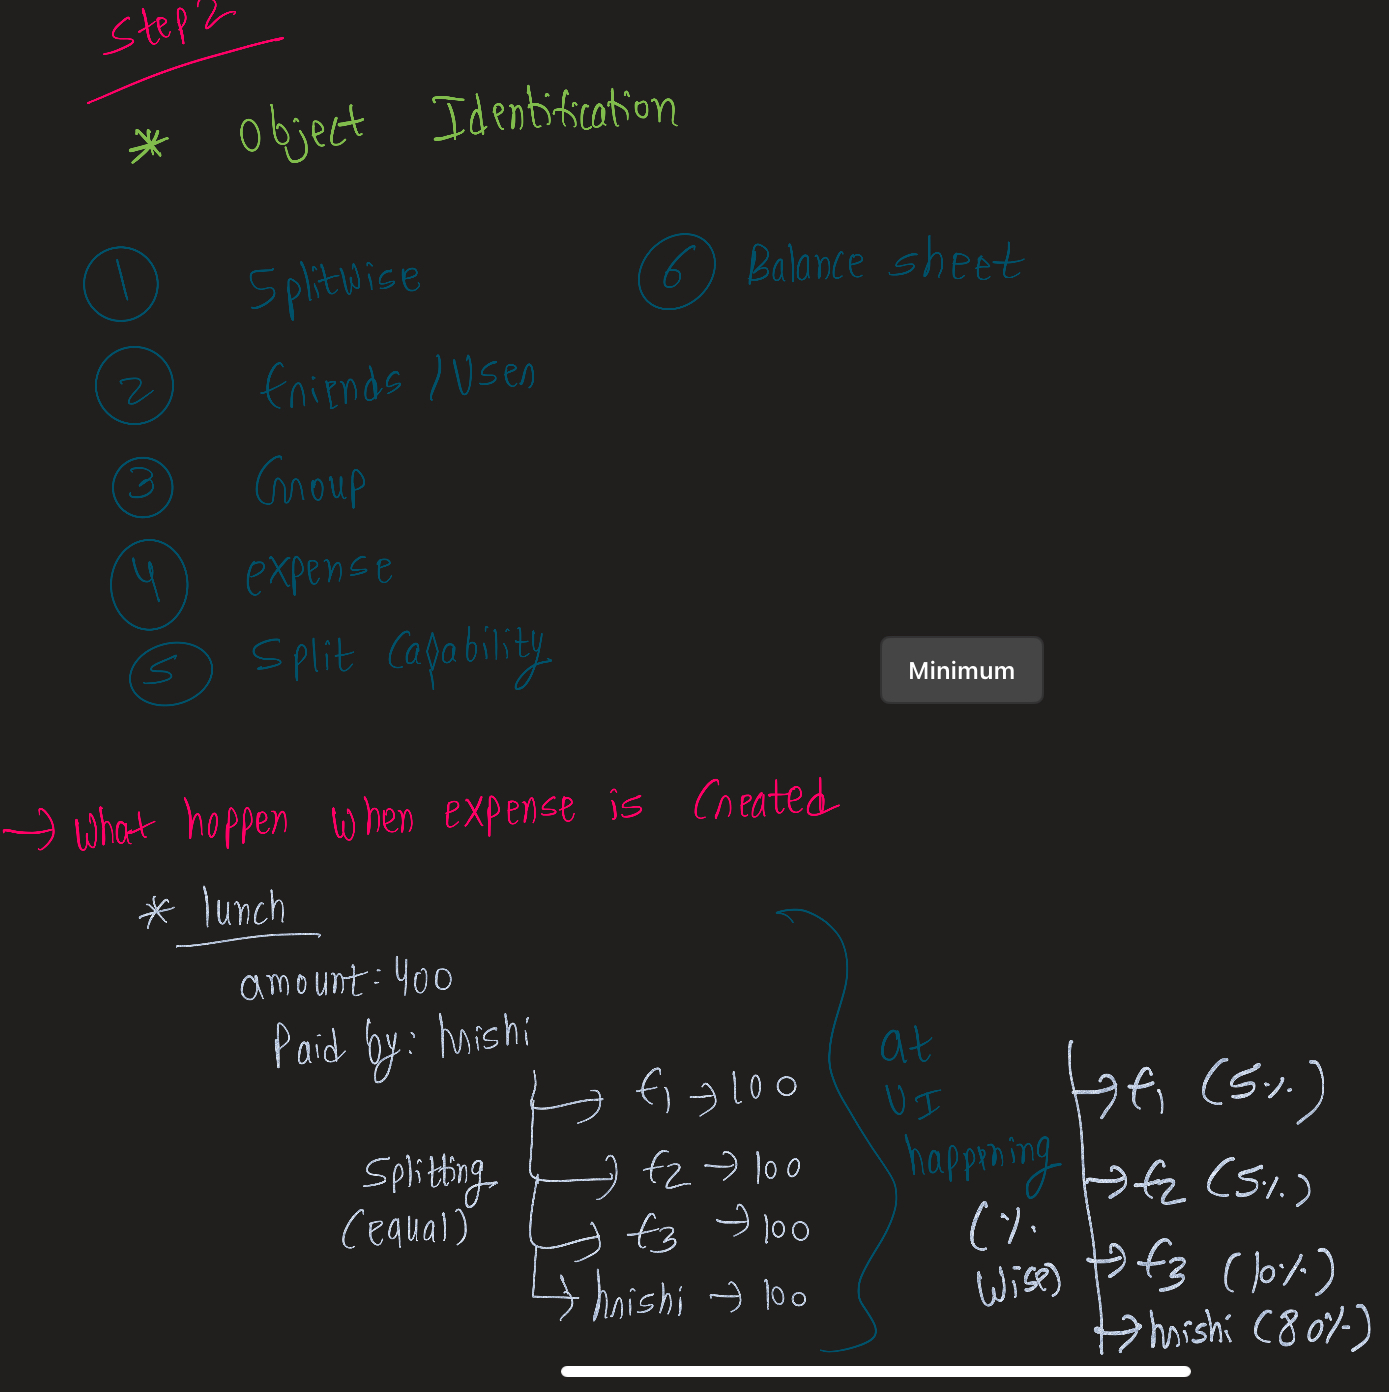 Step 2
* Object Identification
1 Splitwise
2 friends / User
3 Group
4 expense
5 Split Capability
6 Balance sheet
Minimum
→ What happen when expense is Created
* lunch
amount: 400
Paid by: hrishi
Splitting (equal)
→ f1 → 100
→ f2 → 100
→ f3 → 100
→ hrishi → 100
at UI happening
(% wise)
→ f1 (5%)
→ f2 (5%)
→ f3 (10%)
→ hrishi (80%)